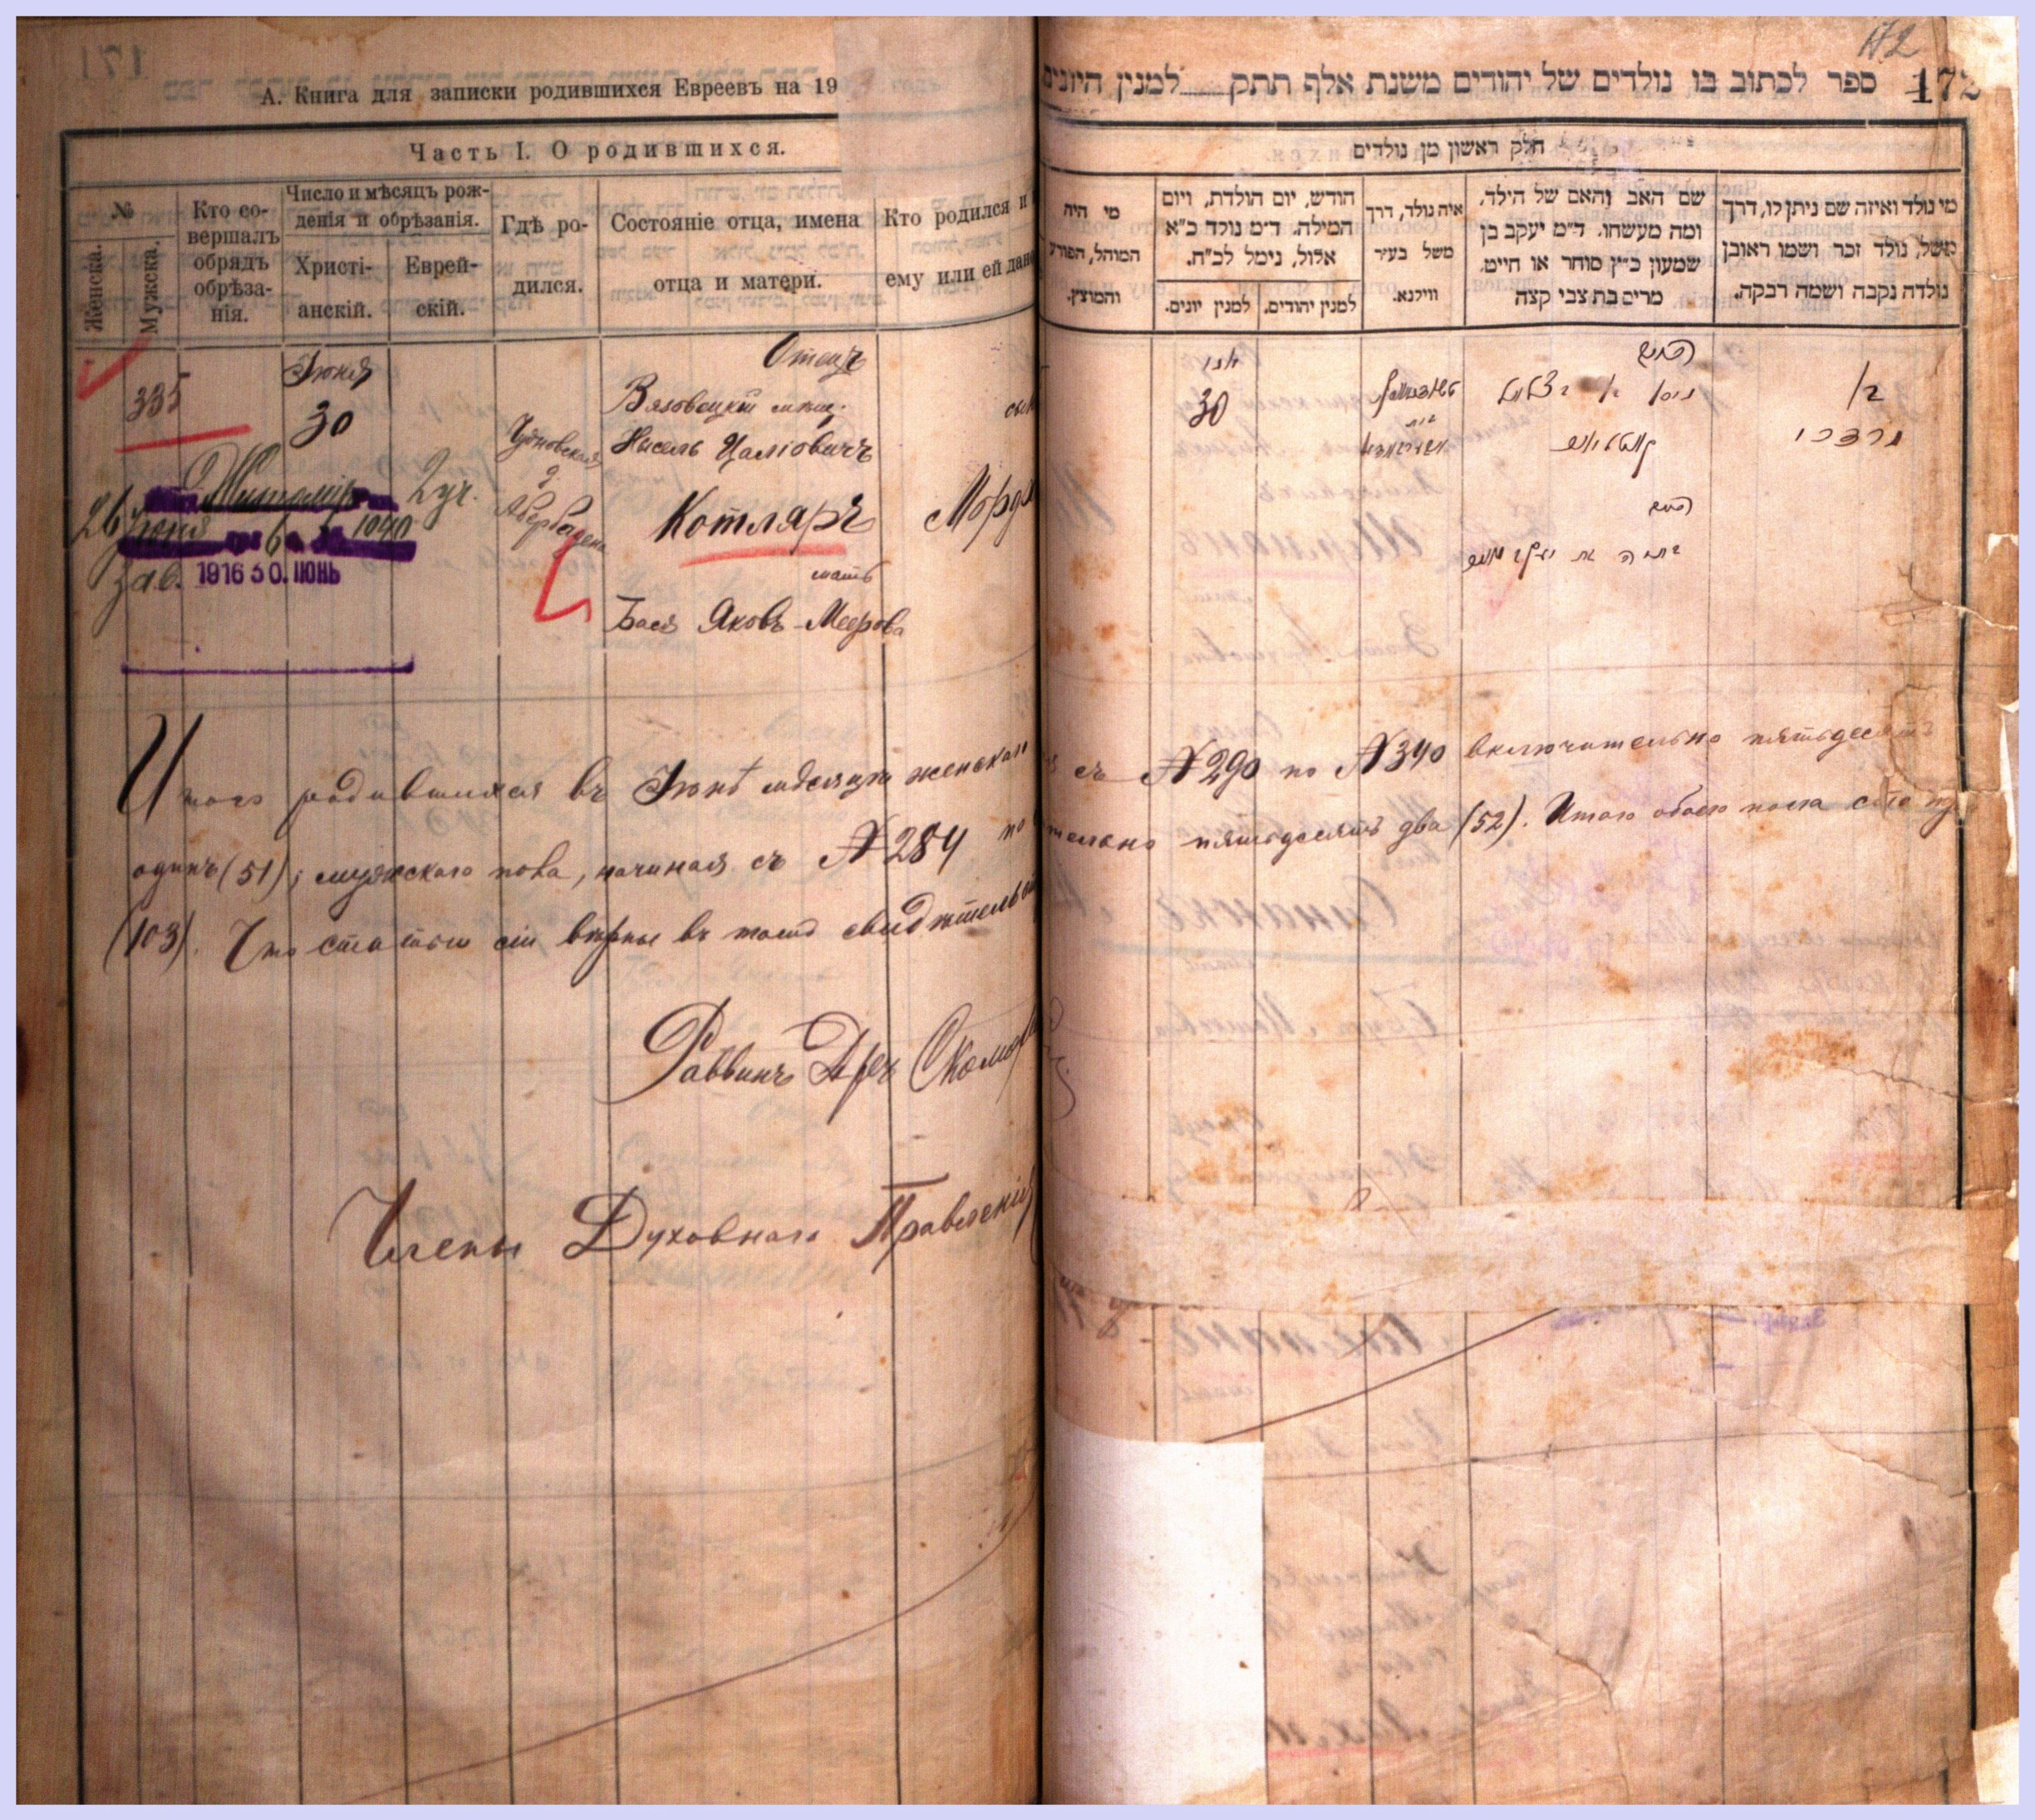 А. Книга для записки родившихся Евреевъ на 19
Часть I. О родившихся.
№
Женска.
Мужска.
Кто со-
вершалъ
обрядъ
обрѣза-
нія.
Число и мѣсяцъ рож-
денія и обрѣзанія.
Христі-
анскій.
Еврей-
скій.
Гдѣ ро-
дился.
Состояніе отца, имена
отца и матери.
Кто родился и
ему или ей дано
335
Іюня
30
Чудновская
Отецъ
Вязовецкій мѣщ.
Нисель Цаліовичъ
Котляръ
мать
Бася Яковъ-Меерова
сынъ
Морд
Житомір 2 уч.
26 Іюня
1916 30. ІЮНЬ
Итого родившихся въ Іюнѣ мѣсяцѣ женскаго
одинъ (51); мужского пола, начиная съ №284 по
(103). Что статьи сіи вѣрны въ томъ свидѣтельс
Раввинъ
Члены Духовнаго Правленія
172
172
ספר לכתוב בו נולדים של יהודים משנת אלף תתק למנין היונים
חלק ראשון מן נולדים
מי היה
המוהל, הפורע
והמוצץ.
חודש, יום הולדת, ויום
המילה. ד״מ נולד כ״א
אלול, נימל לכ״ח.
למנין יונים.
למנין יהודים.
איה נולד, דרך
משל בעיר
ווילנא.
שם האב והאם של הילד,
ומה מעשהו. ד״מ יעקב בן
שמעון כ״ץ סוחר או חייט.
מרים בת צבי קצה
מי נולד ואיזה שם ניתן לו, דרך
משל, נולד זכר ושמו ראובן
נולדה נקבה ושמה רבקה.
30
בן
מרדכי
съ №290 по №340 включительно пятьдесятъ
тельно пятьдесятъ два (52). Итого обоего пола сто три